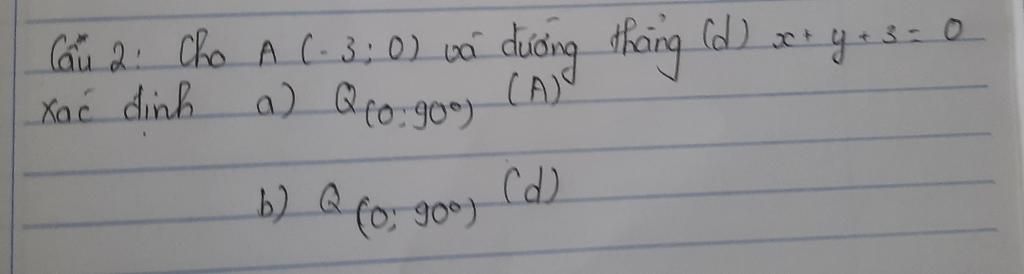 Câu 2: Cho A (-3; 0) và đường thẳng (d) x + y + 3 = 0
xác định a) Q (O; 90°) (A)
b) Q (O; 90°) (d)